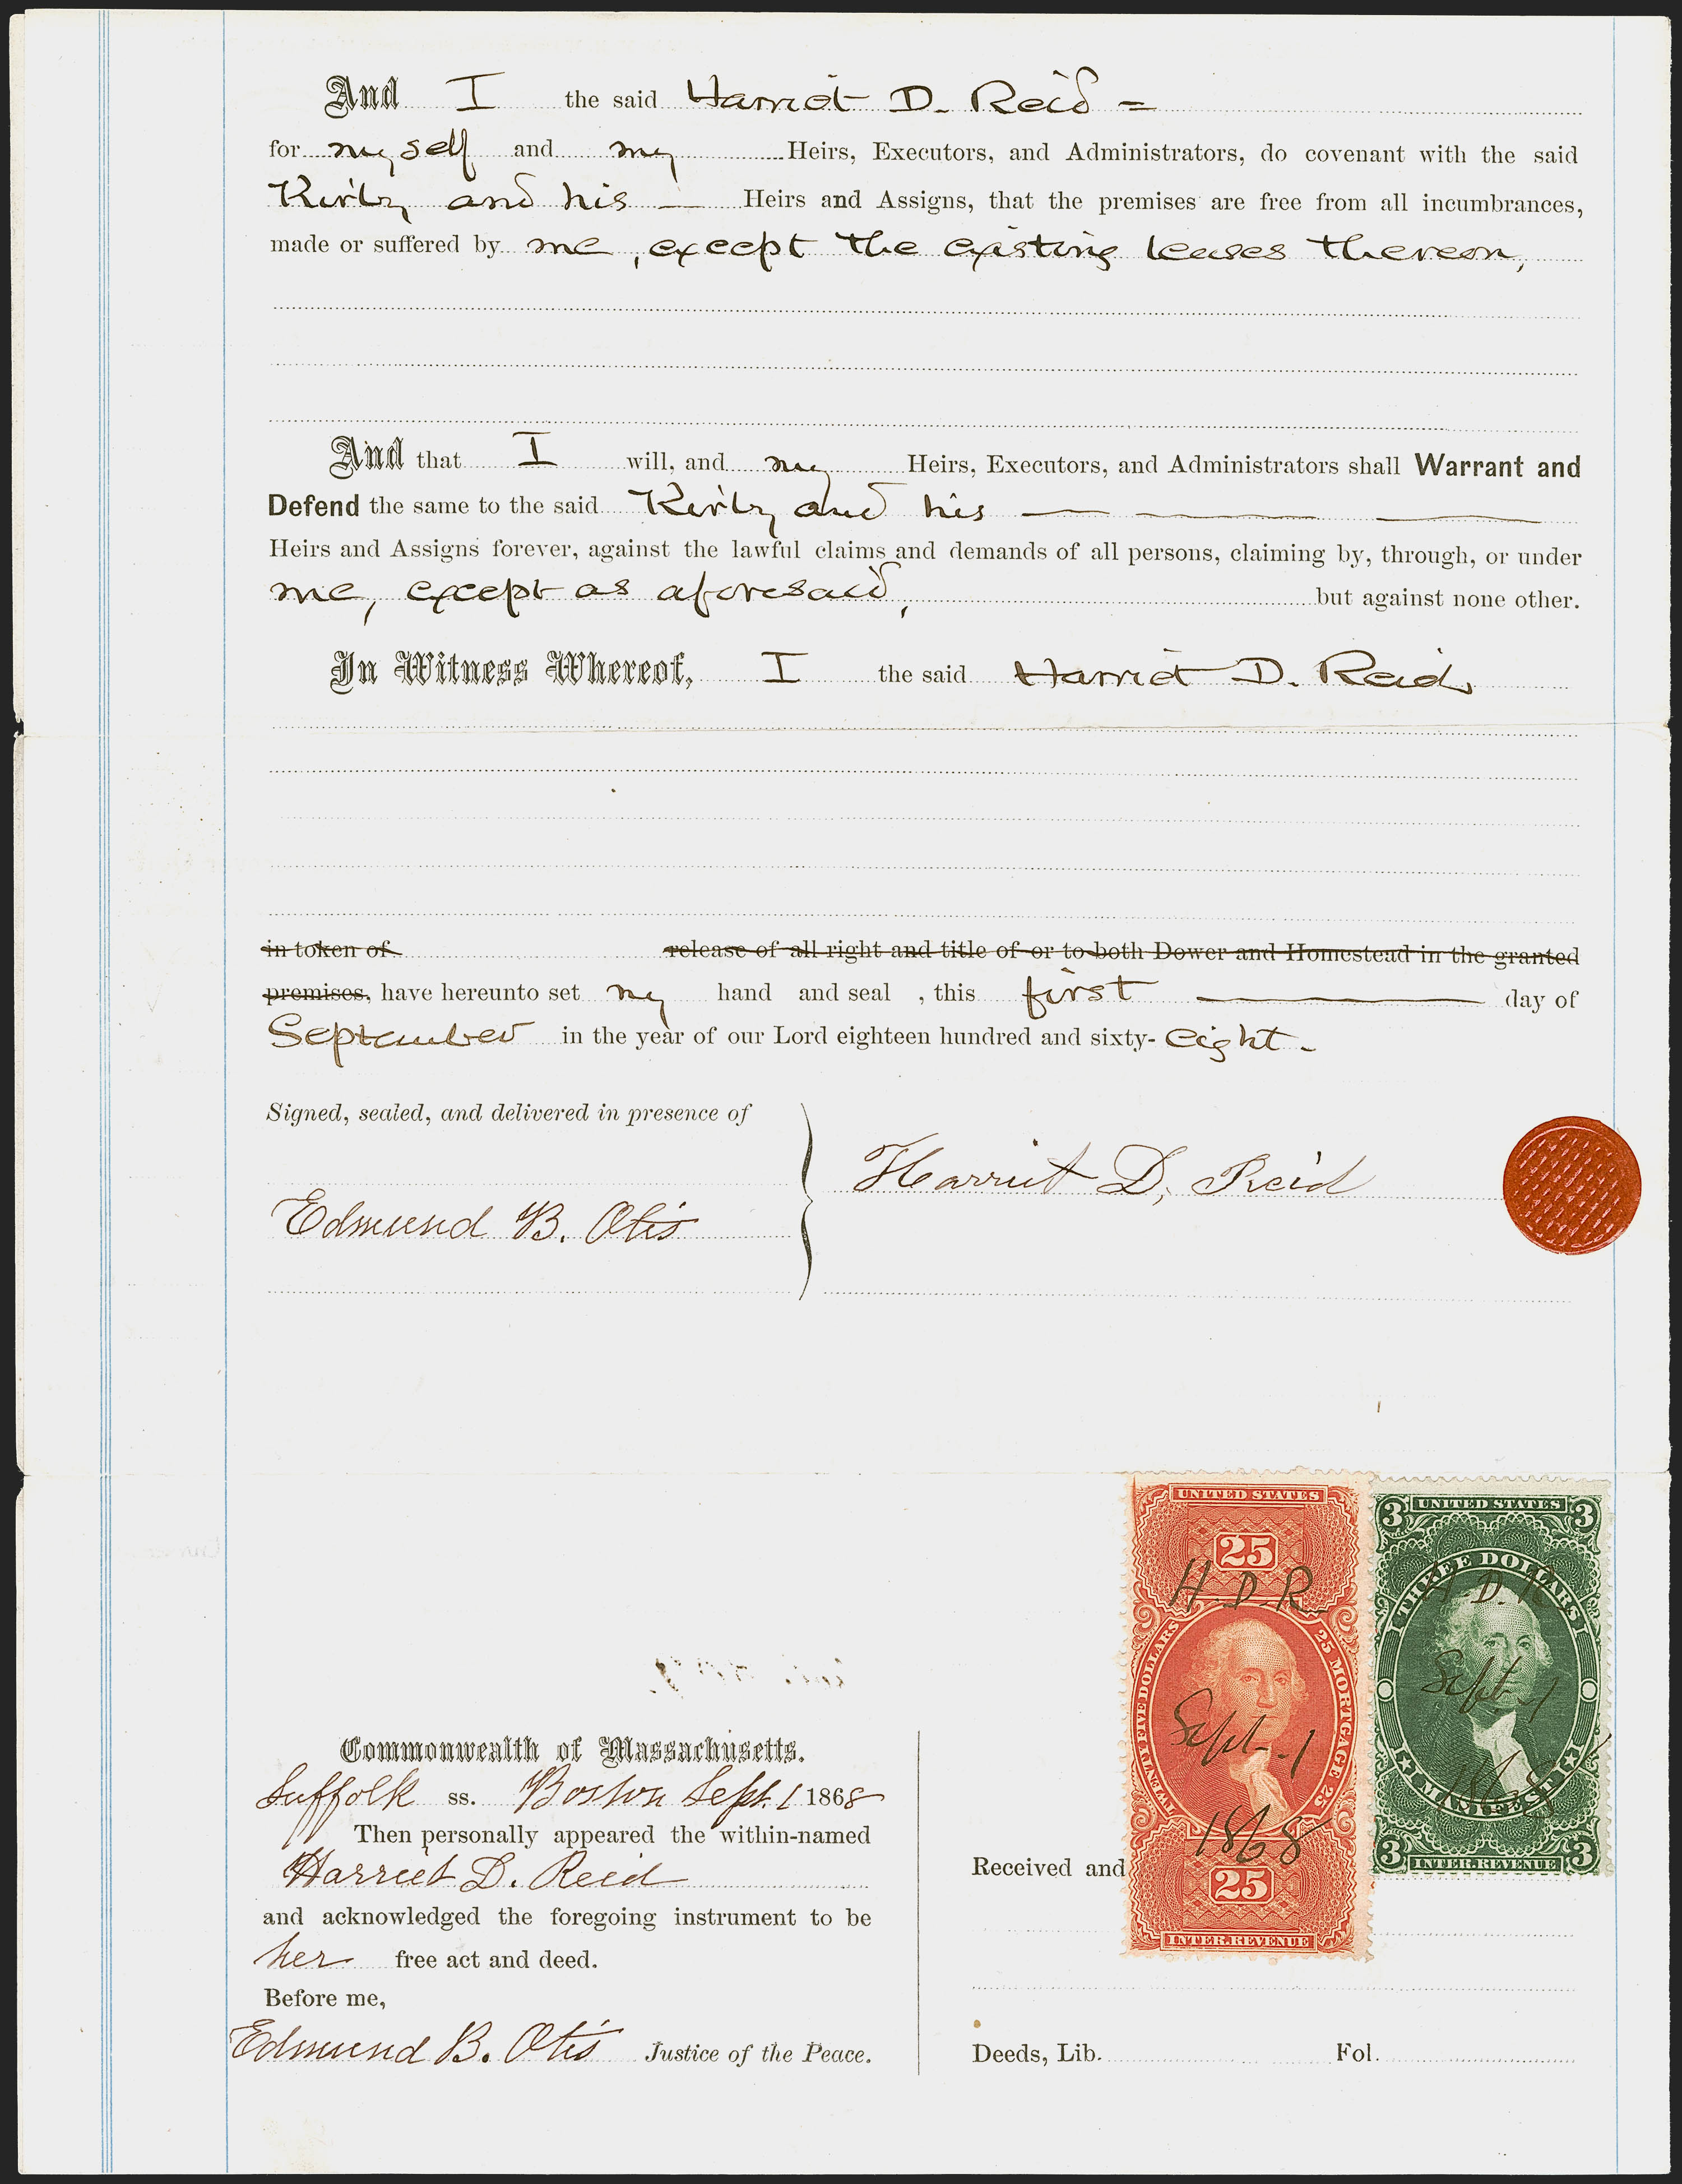 And I the said Harriet D. Reid =
for myself and my Heirs, Executors, and Administrators, do covenant with the said
Kirby and his — Heirs and Assigns, that the premises are free from all incumbrances,
made or suffered by me, except the existing leases thereon,
And that I will, and my Heirs, Executors, and Administrators shall Warrant and
Defend the same to the said Kirby and his — — —
Heirs and Assigns forever, against the lawful claims and demands of all persons, claiming by, through, or under
me, except as aforesaid, but against none other.
In Witness Whereof, I the said Harriet D. Reid
in token of release of all right and title of or to both Dower and Homestead in the granted
premises, have hereunto set my hand and seal , this first — day of
September in the year of our Lord eighteen hundred and sixty- eight.
Signed, sealed, and delivered in presence of
Harriet D. Reid
Edmund B. Otis
UNITED STATES
25
H. D. R.
TWENTY FIVE DOLLARS
25 MORTGAGE 25
Sept. 1
1868
25
INTER. REVENUE
3 UNITED STATES 3
THREE DOLLARS
H. D. R.
Sept. 1
1868
MANIFEST
3 INTER. REVENUE 3
Commonwealth of Massachusetts.
Suffolk ss. Boston Sept. 1 1868
Then personally appeared the within-named
Harriet D. Reid
and acknowledged the foregoing instrument to be
her free act and deed.
Before me,
Edmund B. Otis Justice of the Peace.
Received and
Deeds, Lib. Fol.